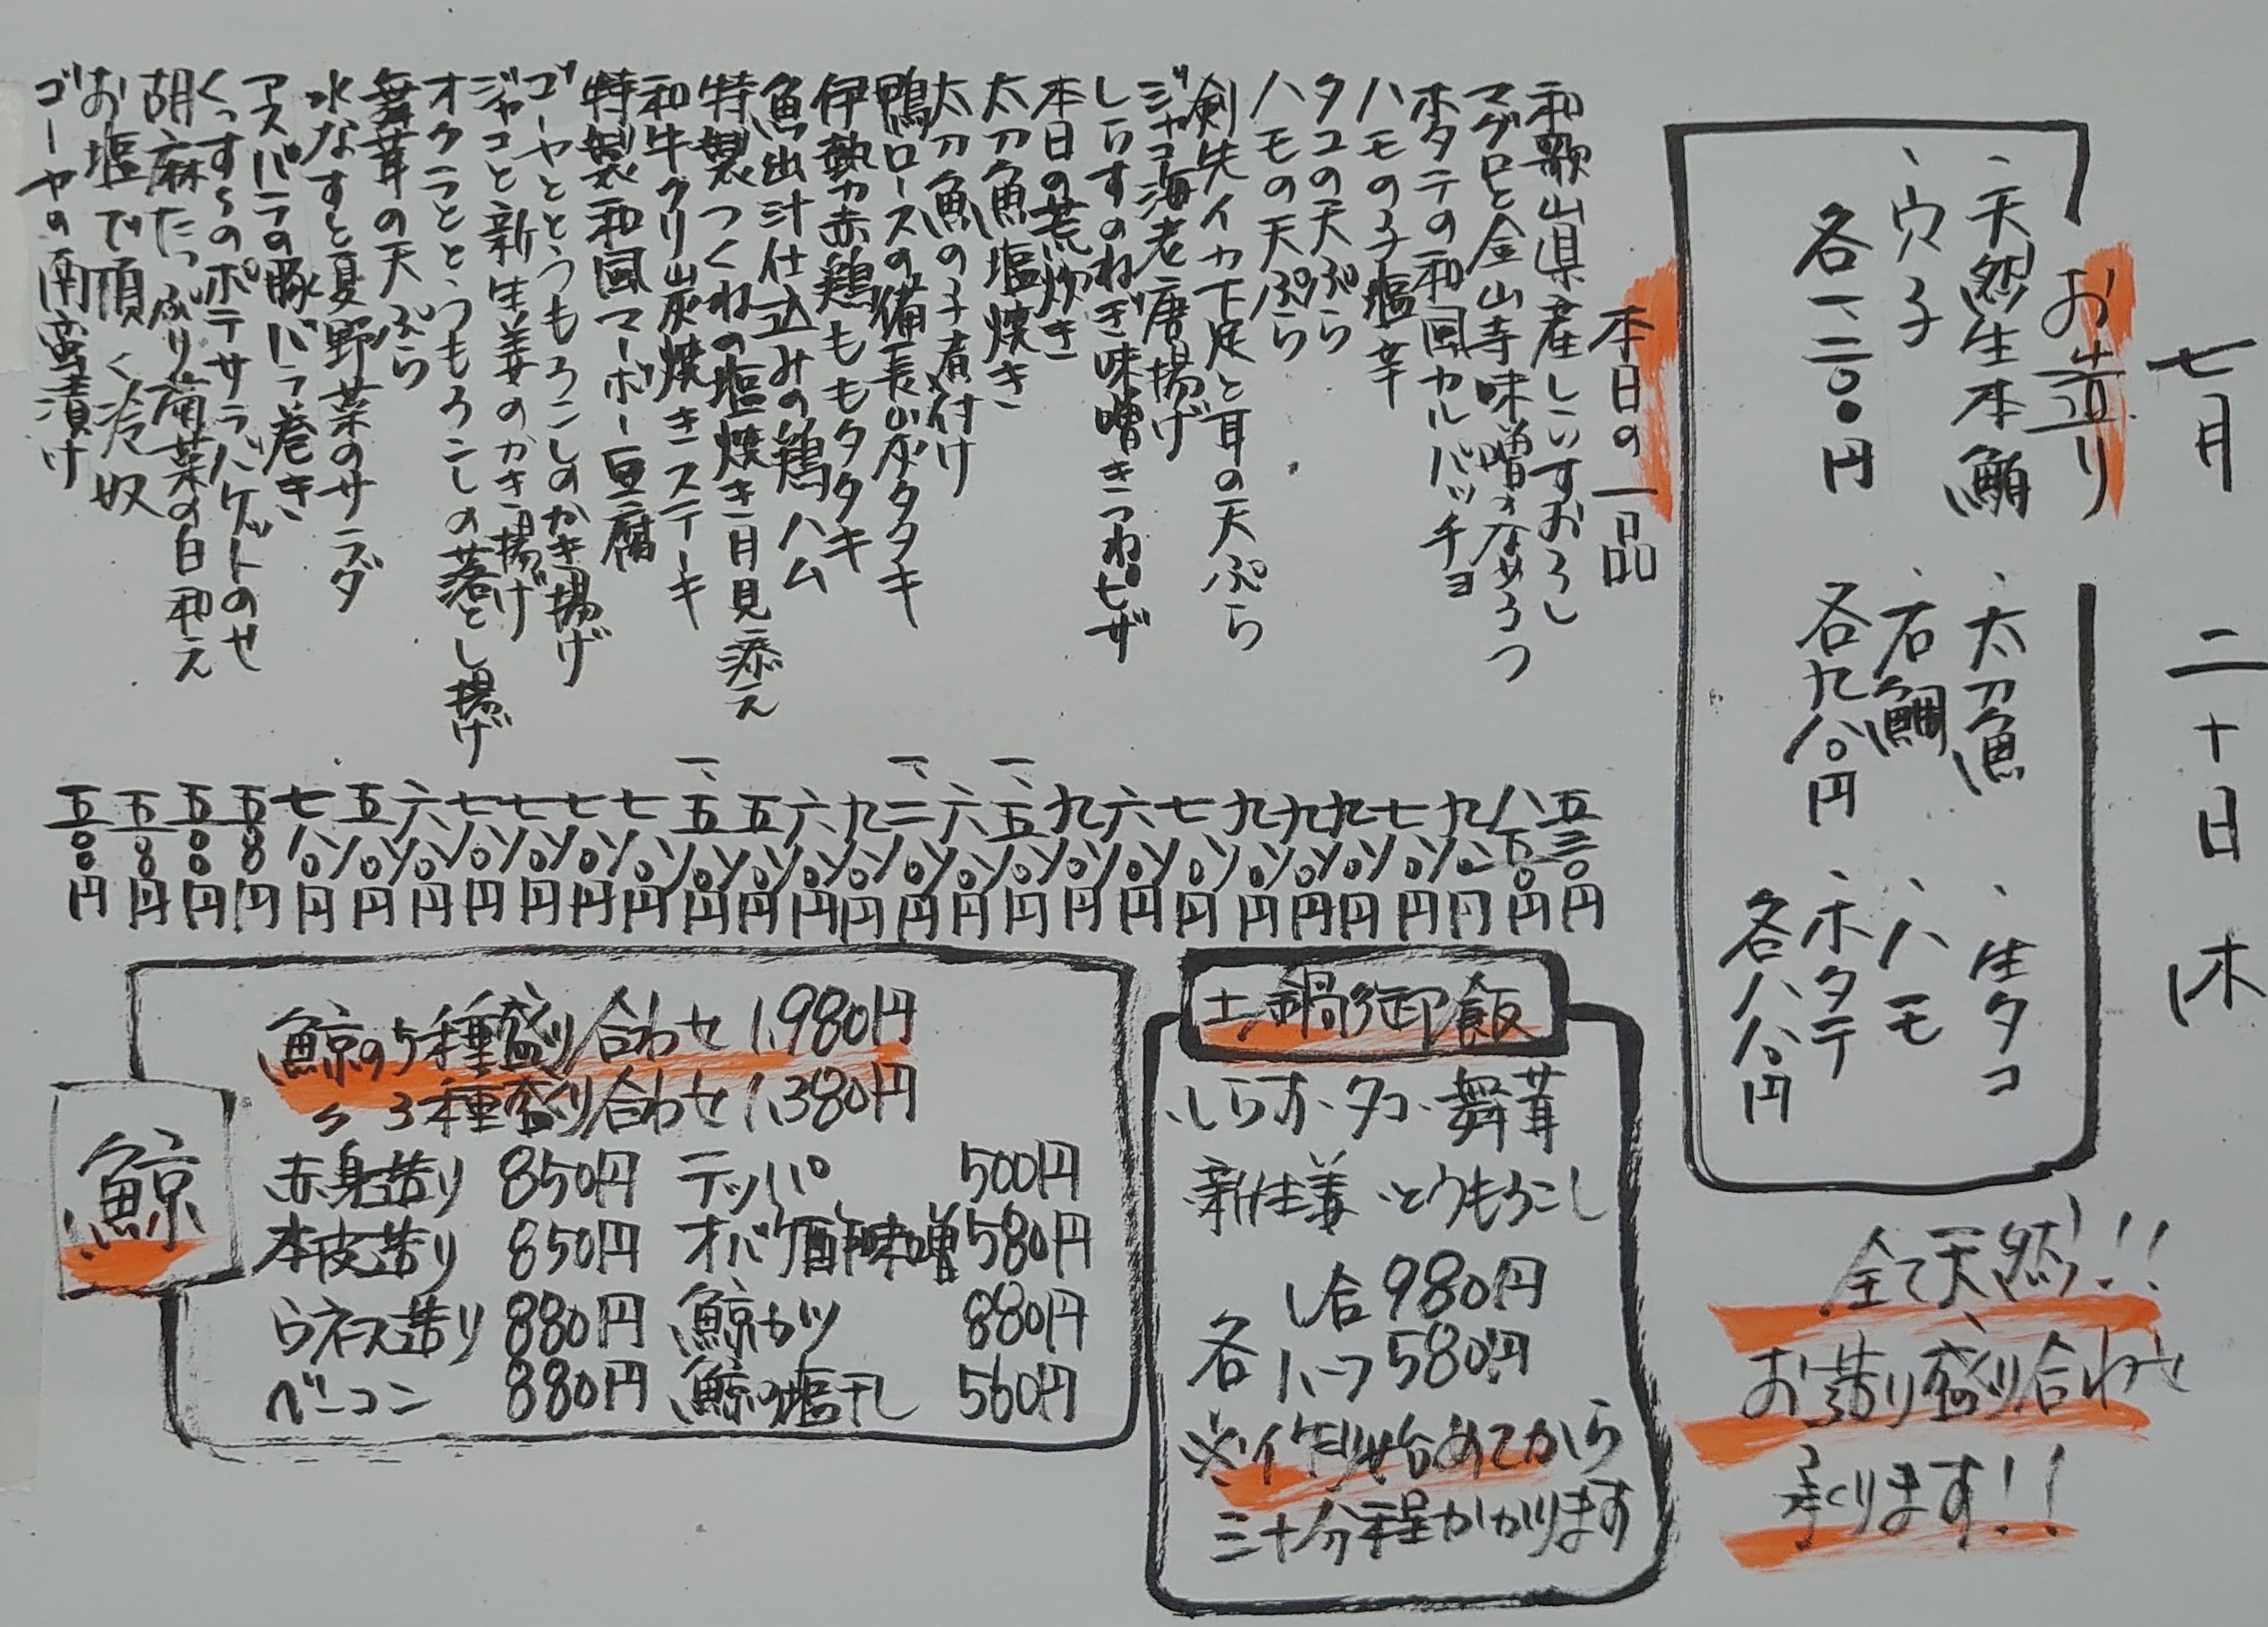 七月二十日木
お造り
、天然生本鮪
、穴子
各一、二八〇円
、太刀魚
、石鯛
各九八〇円
、生タコ
、ハモ
、ホタテ
各八八〇円
全て天然!!
お造り盛り合わせ
承ります!!
本日の一品
和歌山県産しらすおろし 五三〇円
マグロと金山寺味噌のなめろう 八五〇円
ホタテの和風カルパッチョ 九八〇円
ハモの子塩辛 七八〇円
タコの天ぷら 九八〇円
ハモの天ぷら 九八〇円
剣先イカ下足と耳の天ぷら 九八〇円
ジャコ海老唐揚げ 七八〇円
しらすのねぎ味噌きつねピザ 六八〇円
本日の荒炊き 九八〇円
太刀魚塩焼き 一、五八〇円
太刀魚の子煮付け 六八〇円
鴨ロースの備長炭タタキ 一、二八〇円
伊勢赤鶏ももタタキ 九八〇円
魚出汁仕込みの鶏ハム 六八〇円
特製つくねの塩焼き月見添え 五八〇円
和牛クリ炭焼きステーキ 一、五八〇円
特製和風マーボー豆腐 七八〇円
ゴーヤととうもろこしのかき揚げ 七八〇円
ジャコと新生姜のかき揚げ 七八〇円
オクラととうもろこしの落とし揚げ 七八〇円
舞茸の天ぷら 六八〇円
水なすと夏野菜のサラダ 五八〇円
アスパラの豚バラ巻き 七八〇円
くっすぅのポテサラバケットのせ 五八〇円
胡麻たっぷり菊菜の白和え 五〇〇円
お塩で頂く冷奴 五〇〇円
ゴーヤの南蛮漬け 五〇〇円
土鍋御飯
・しらす・タコ・舞茸
新生姜・とうもろこし
各 一合 980円
ハーフ 580円
※作り始めてから
三十分程かかります
鯨
鯨の5種盛り合わせ 1,980円
〃 3種盛り合わせ 1,380円
赤身造り 850円 テッパ 500円
本皮造り 850円 オバケ酢味噌 580円
ウネス造り 880円 鯨カツ 880円
ベーコン 880円 鯨の塩干し 560円